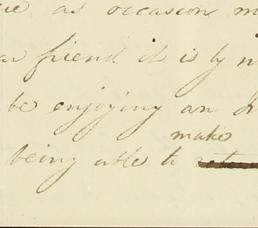 as occasion
friend it is by
be enjoying an
make
being able to